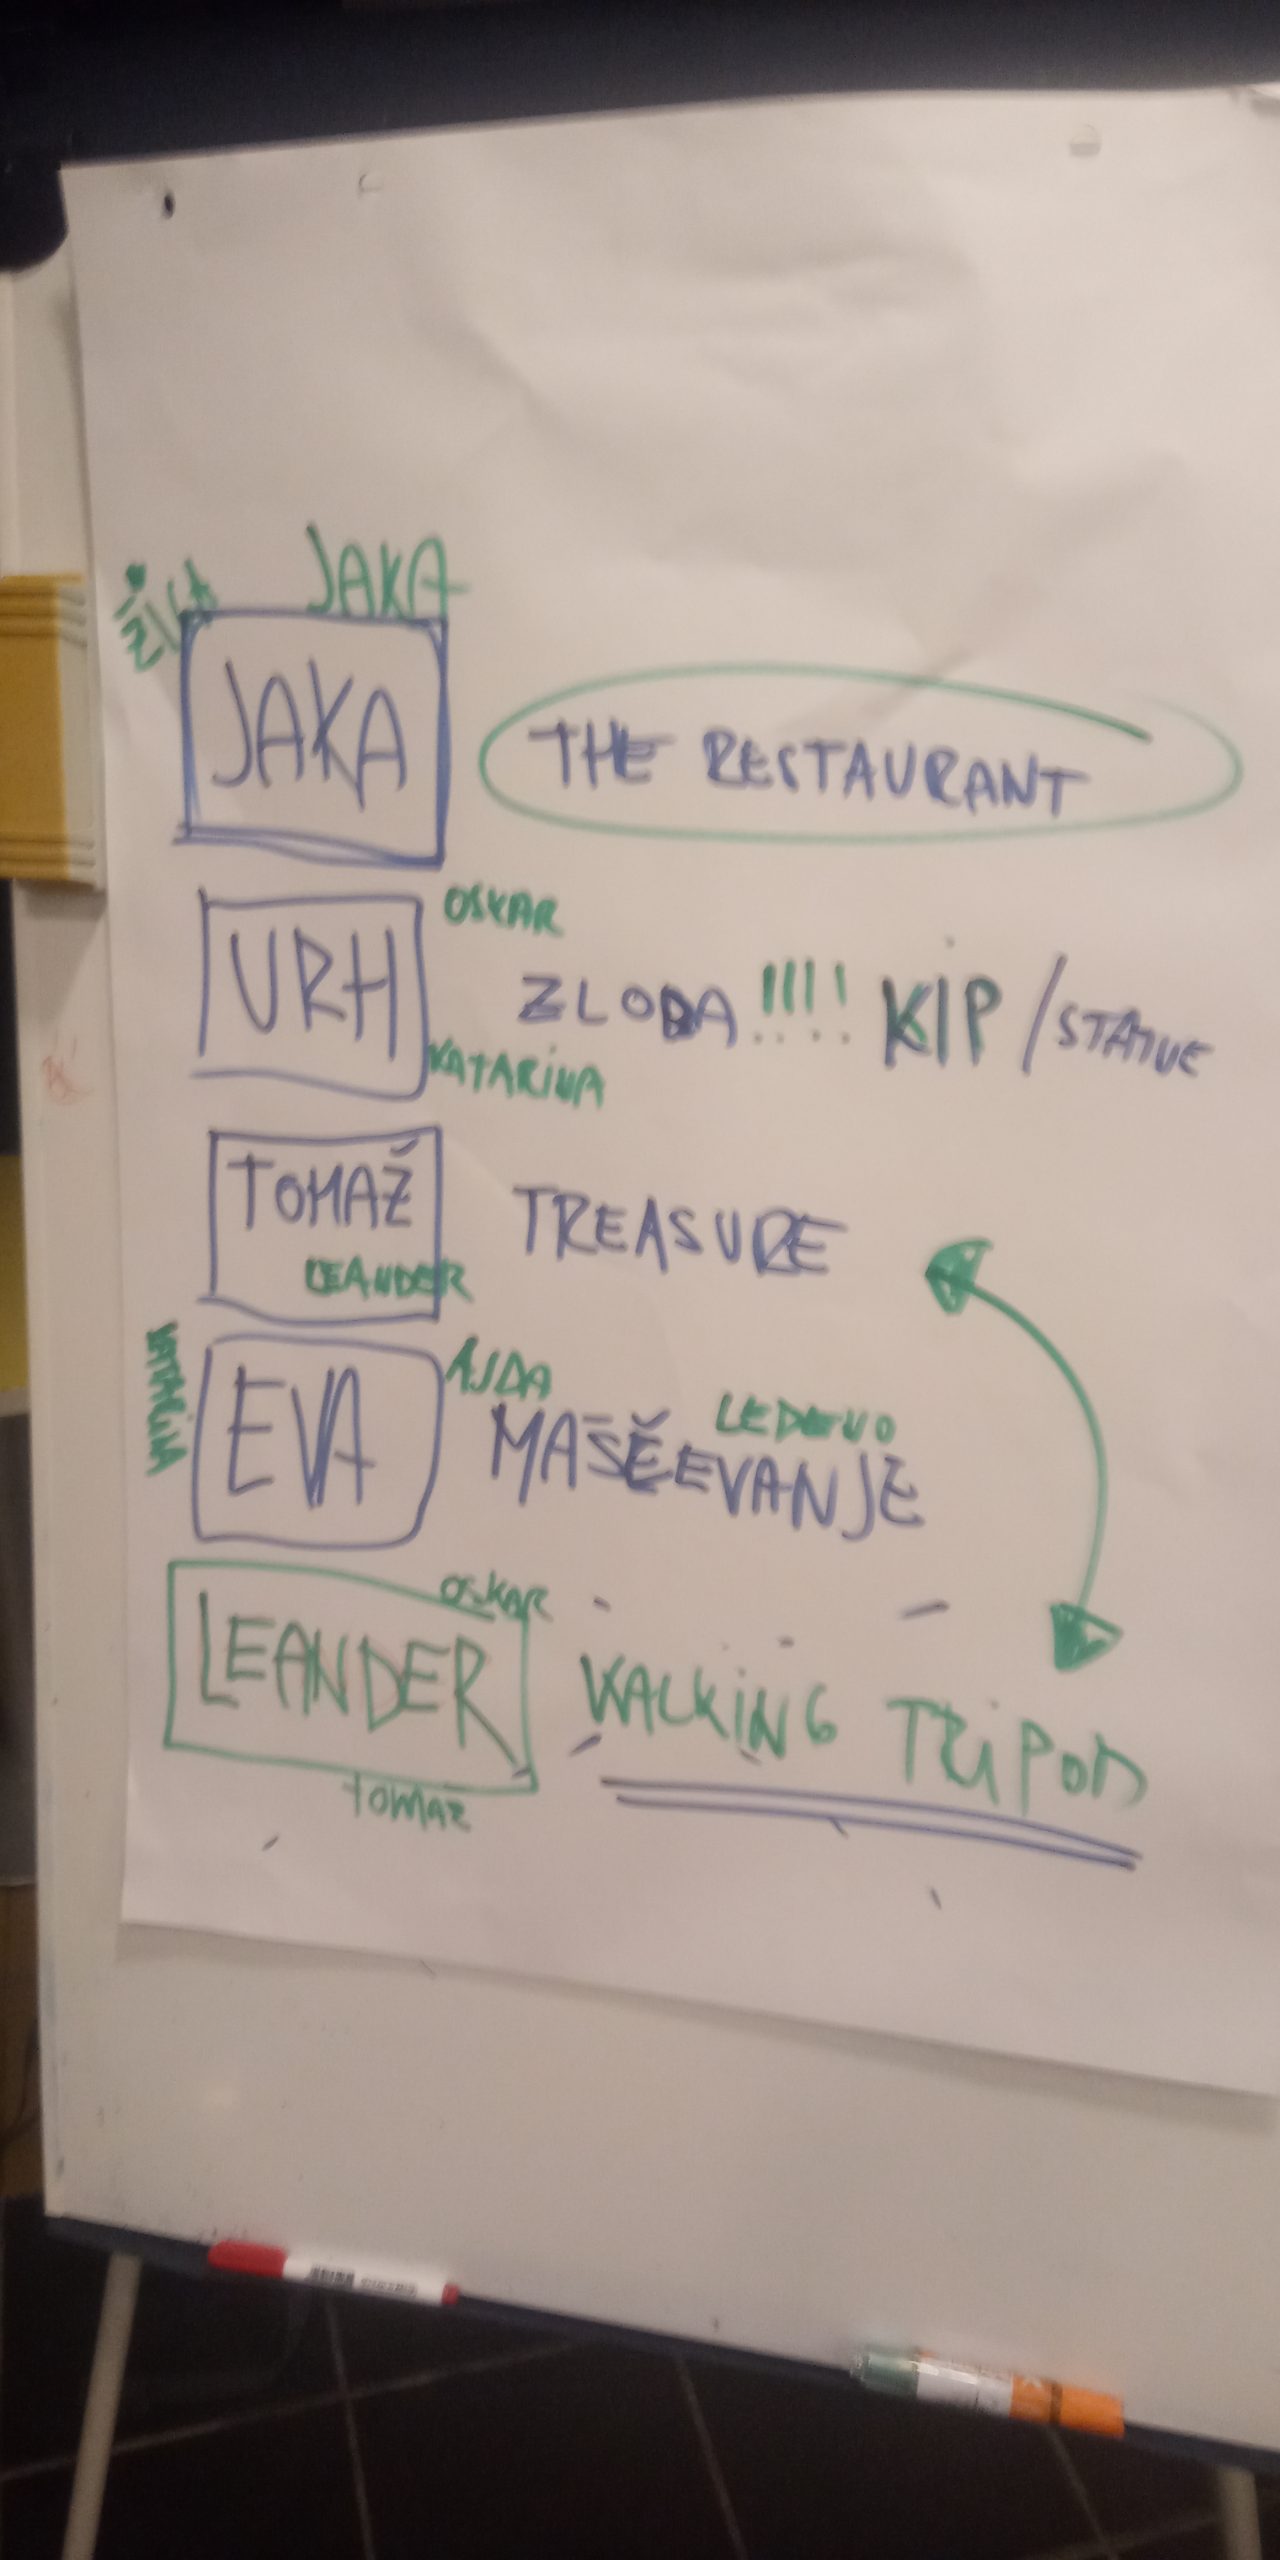 JAKA
JAKA
THE RESTAURANT
OSKAR
URH
ZLOBA !!!! KIP / STATUE
KATARINA
TOMAŽ
TREASURE
LEANDER
AJDA
LEDENO
EVA
MAŠČEVANJE
OSKAR
LEANDER
WALKING TRIPOD
TOMAŽ